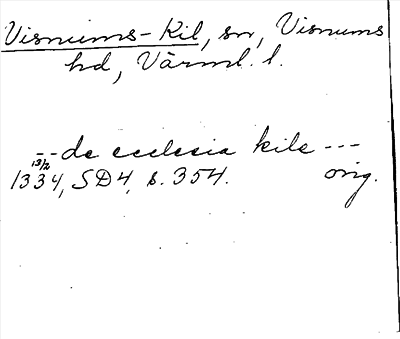 Visnums-Kil, sn, Visnums
hd, Värml. l.
--de ecclesia kile ---
13/2
1334, SD4, s. 354. orig.